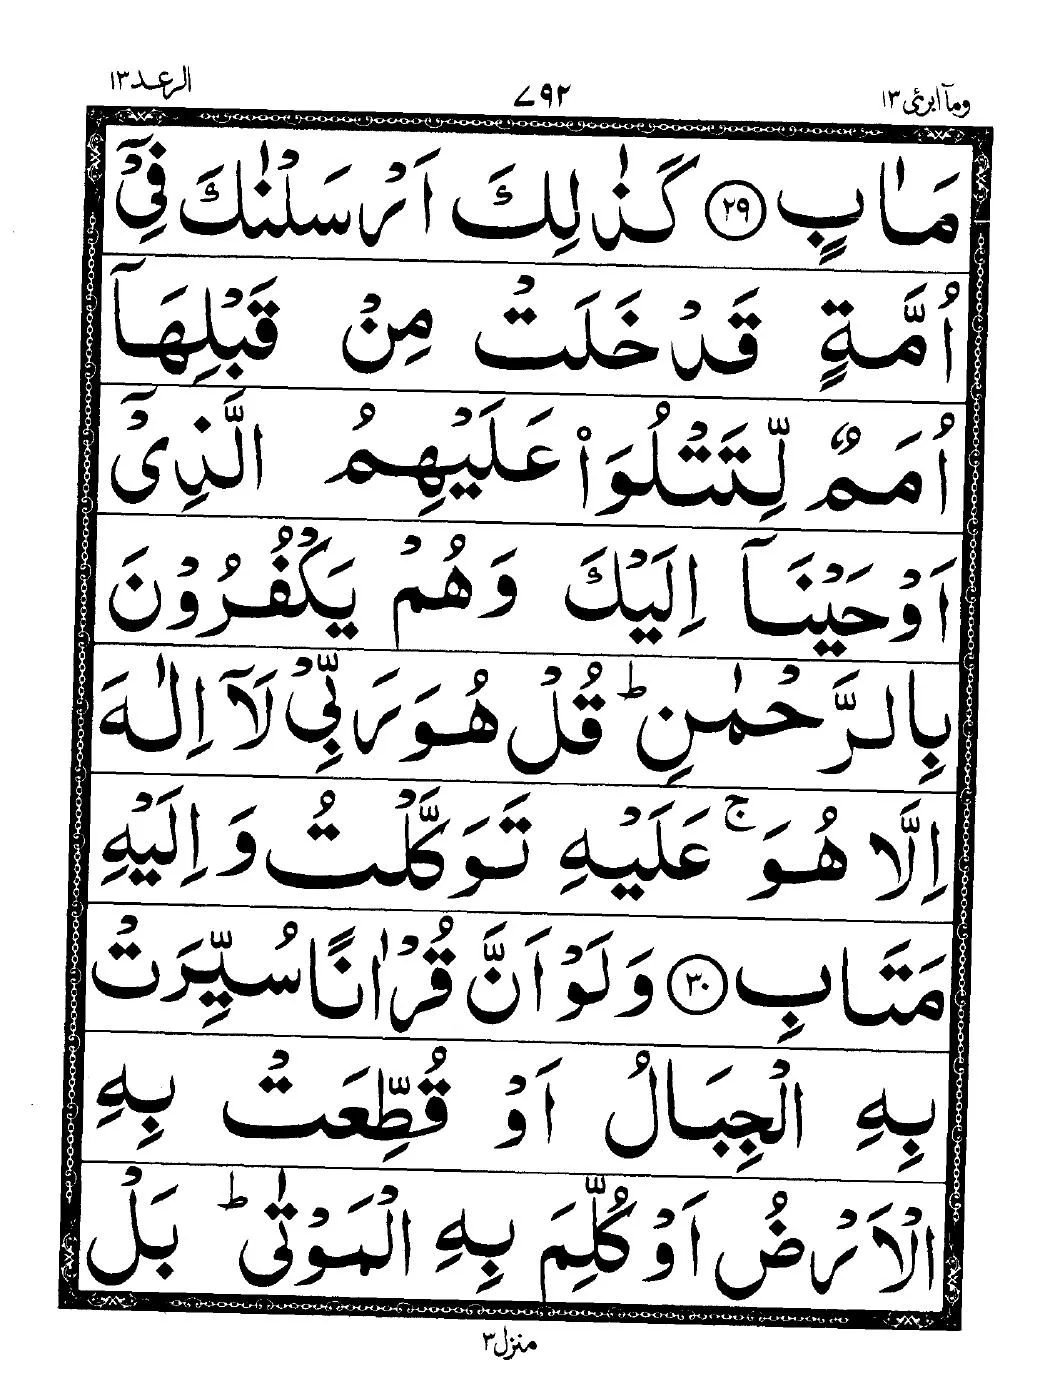 وماۤ ابرئ ١٣
٧٩٢
الرعد ١٣
مَاٰبٍ ﴿٢٩﴾ كَذٰلِكَ اَرْسَلْنٰكَ فِیْۤ
اُمَّةٍ قَدْ خَلَتْ مِنْ قَبْلِهَاۤ
اُمَمٌ لِّتَتْلُوَا۟ عَلَیْهِمُ الَّذِیْۤ
اَوْحَیْنَاۤ اِلَیْكَ وَهُمْ یَكْفُرُوْنَ
بِالرَّحْمٰنِ ؕ قُلْ هُوَ رَبِّیْ لَاۤ اِلٰهَ
اِلَّا هُوَ ۚ عَلَیْهِ تَوَكَّلْتُ وَاِلَیْهِ
مَتَابِ ﴿٣٠﴾ وَلَوْ اَنَّ قُرْاٰنًا سُیِّرَتْ
بِهِ الْجِبَالُ اَوْ قُطِّعَتْ بِهِ
الْاَرْضُ اَوْ كُلِّمَ بِهِ الْمَوْتٰی ؕ بَلْ
منزل ٣